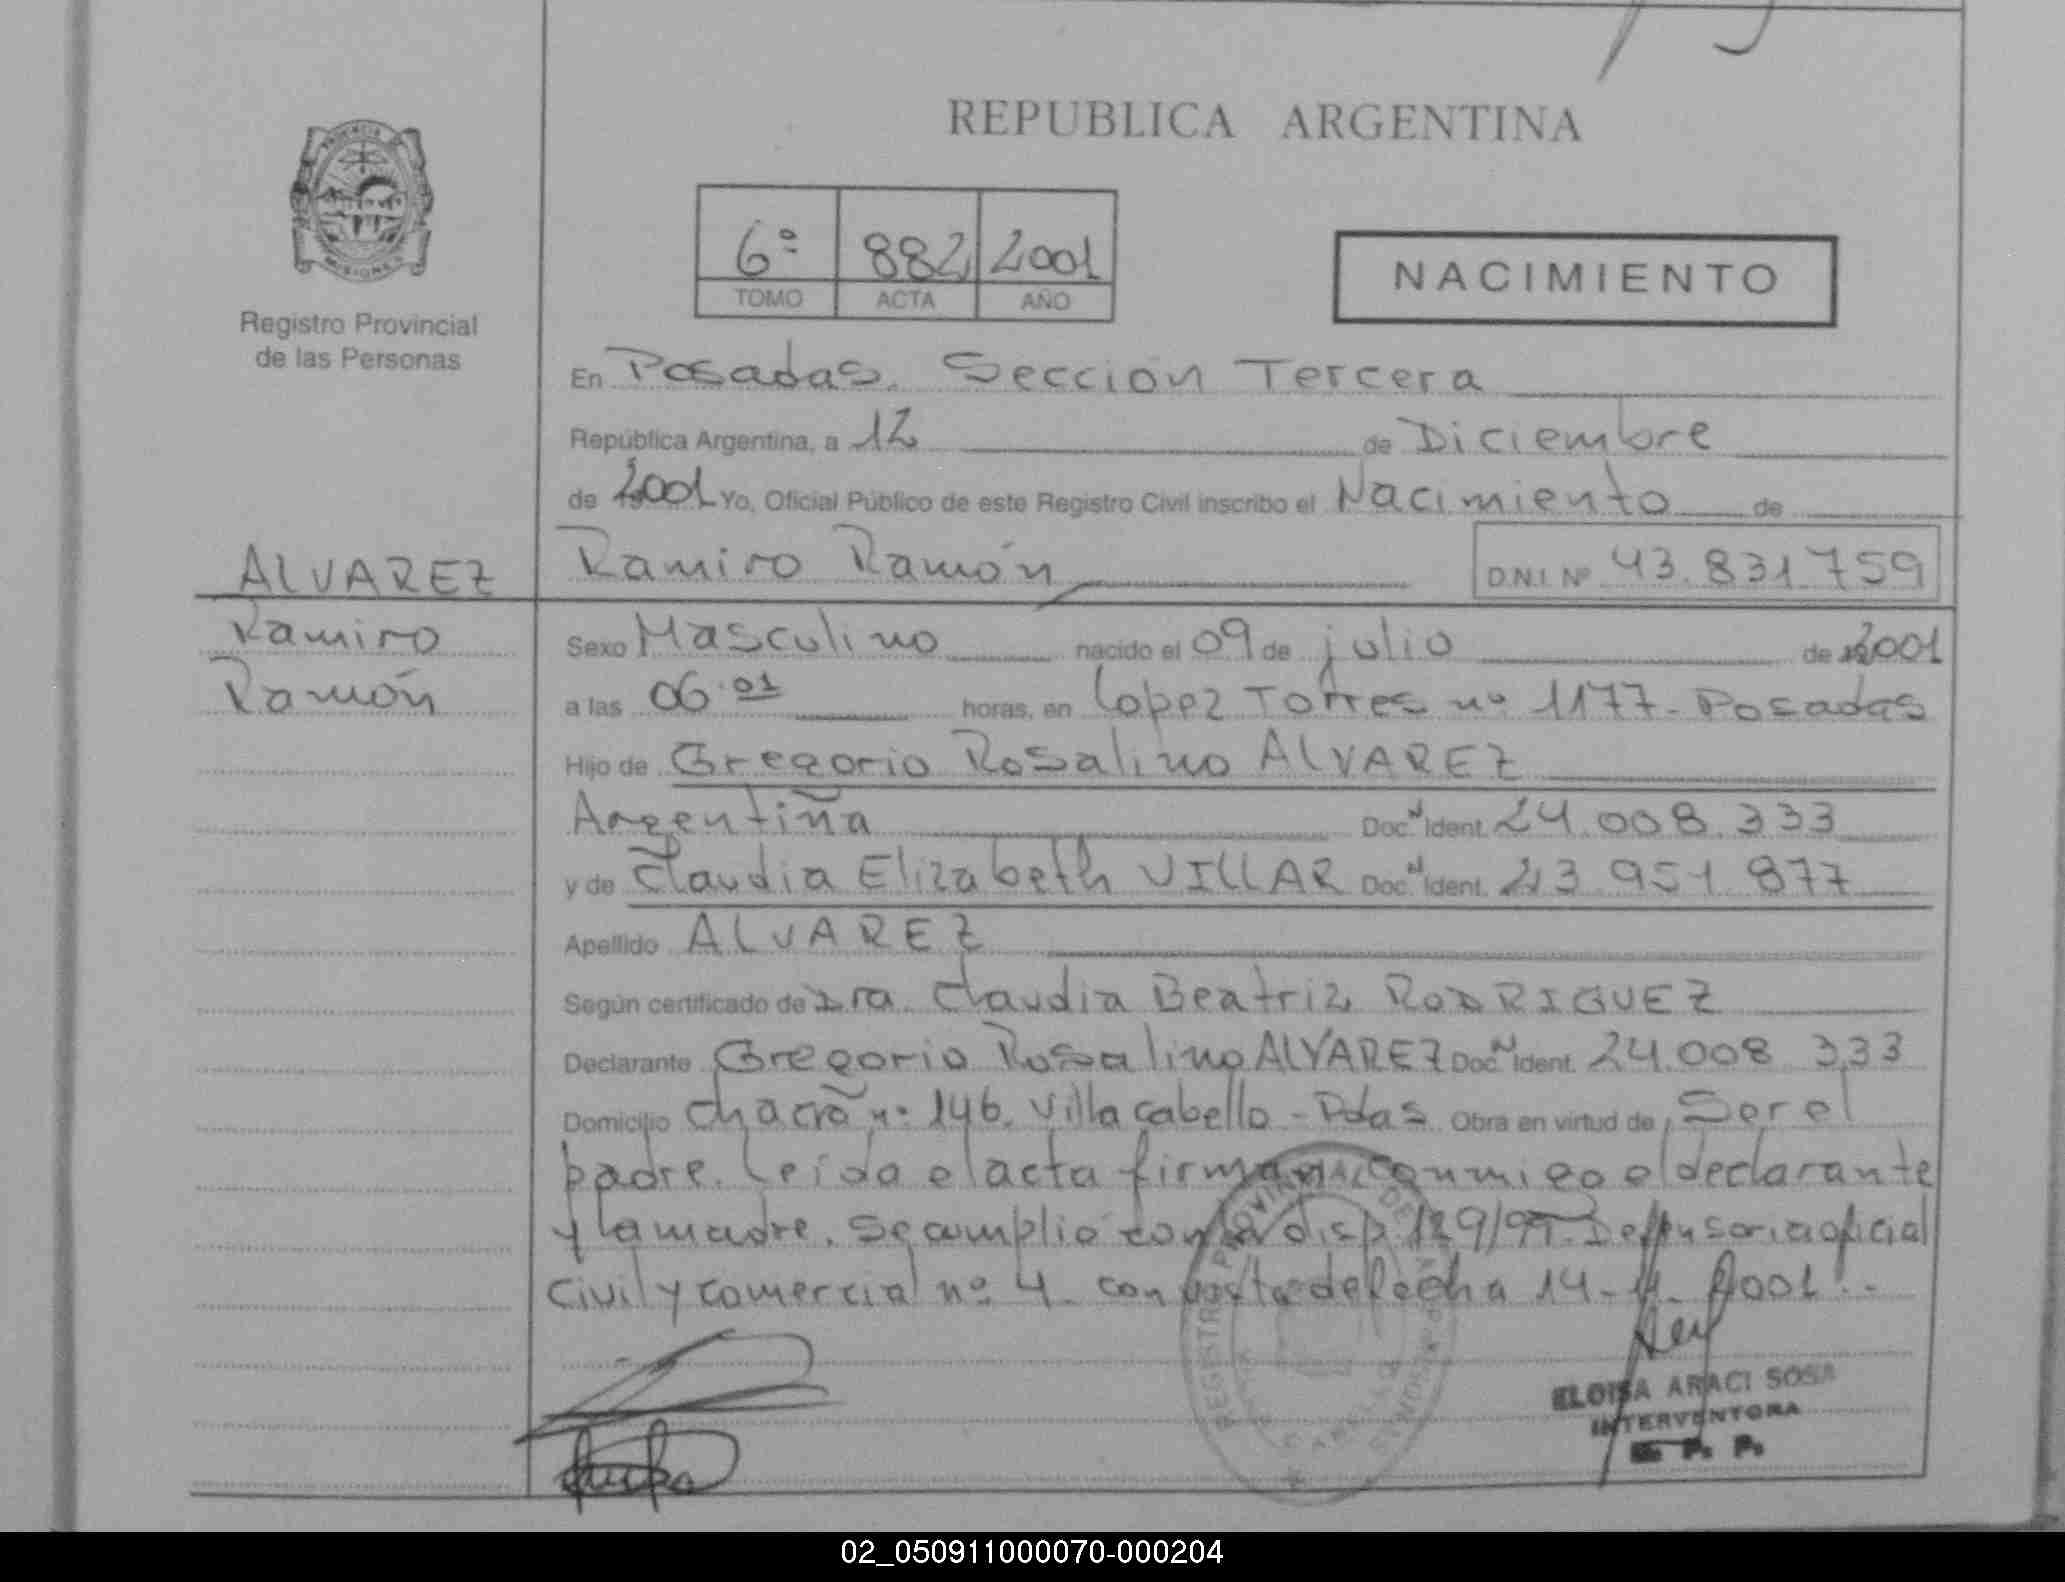 REPUBLICA ARGENTINA
PROVINCIA
MISIONES
Registro Provincial
de las Personas
6º 882 2001
TOMO ACTA AÑO
NACIMIENTO
En Posadas. Seccion Tercera
República Argentina, a 12 de Diciembre
de 2001 Yo, Oficial Público de este Registro Civil inscribo el Nacimiento de
ALVAREZ Ramiro Ramón D.N.I. Nº 43.831.759
Ramiro
Ramón
Sexo Masculino nacido el 09 de julio de 2001
a las 06:01 horas, en Lopez Torres nº 1177 - Posadas
Hijo de Gregorio Rosalino ALVAREZ
Argentina Doc. Ident. 24.008.333
y de Claudia Elizabeth VILLAR Doc. Ident. 23.951.877
Apellido ALVAREZ
Según certificado de Dra. Claudia Beatriz RODRIGUEZ
Declarante Gregorio Rosalino ALVAREZ Doc. Ident. 24.008.333
Domicilio chacra nº 146. Villa cabello - Pdas. Obra en virtud de Ser el
padre. Leida el acta firman conmigo el declarante
y la madre. Se cumplio con la disp. 129/99. Deffensoria oficial
Civil y comercial nº 4 - con vista de fecha 14-11-2001.-
ELOISA ARACI SOSA
INTERVENTORA
R. P. P.
02_050911000070-000204